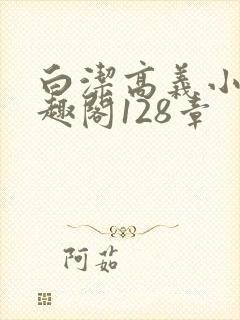 白潔高義小
趣閣128章
阿茹